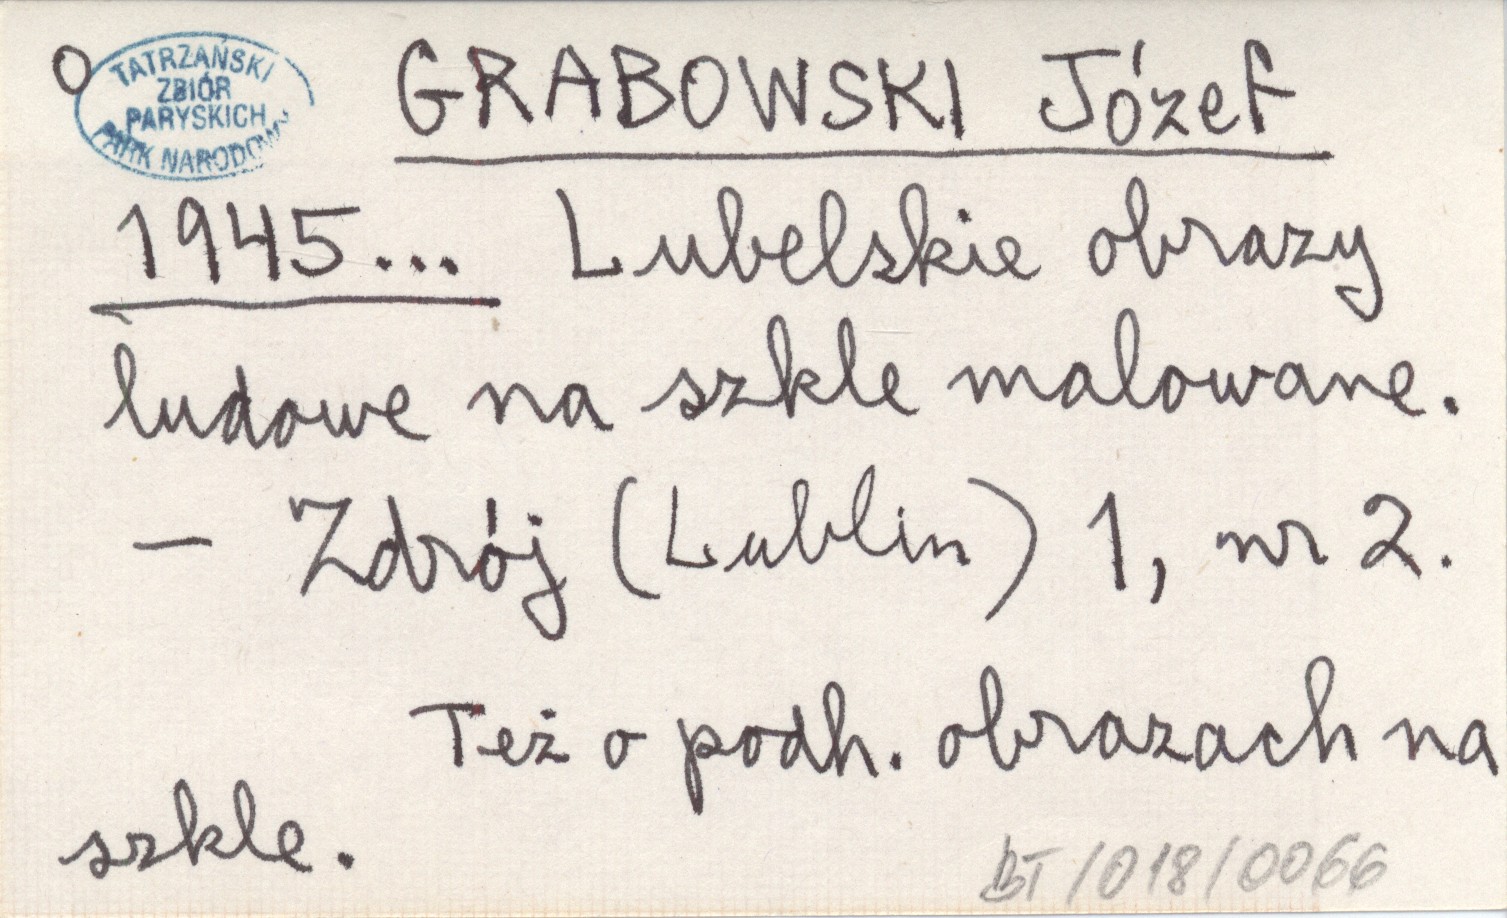 O
TATRZAŃSKI
ZBIÓR
PARYSKICH
PARK NARODOWY
GRABOWSKI Józef
1945... Lubelskie obrazy
ludowe na szkle malowane.
— Zdrój (Lublin) 1, nr 2.
Też o podh. obrazach na
szkle.
BT/018/0066